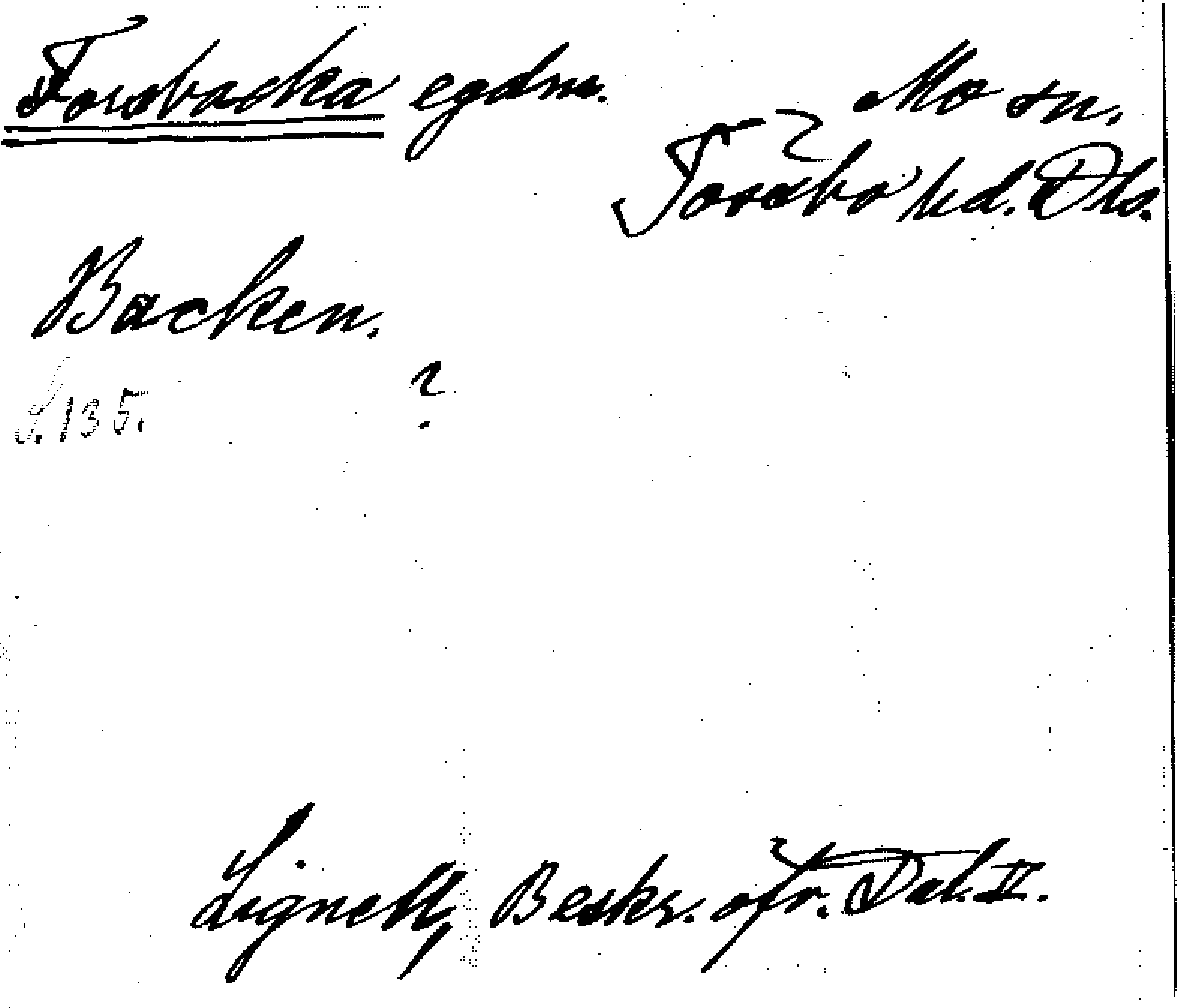 Forsbacka egdm.
Mo sn.
Tössbo hd. Dls.
Backen.
S. 135.
?
Lignell, Beskr. öfr. Dal. II.